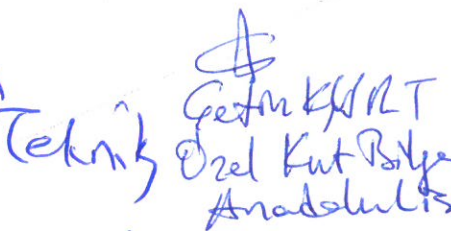 Çetin KURT
Teknik Özel Kut Bilge
Anadolu Lis